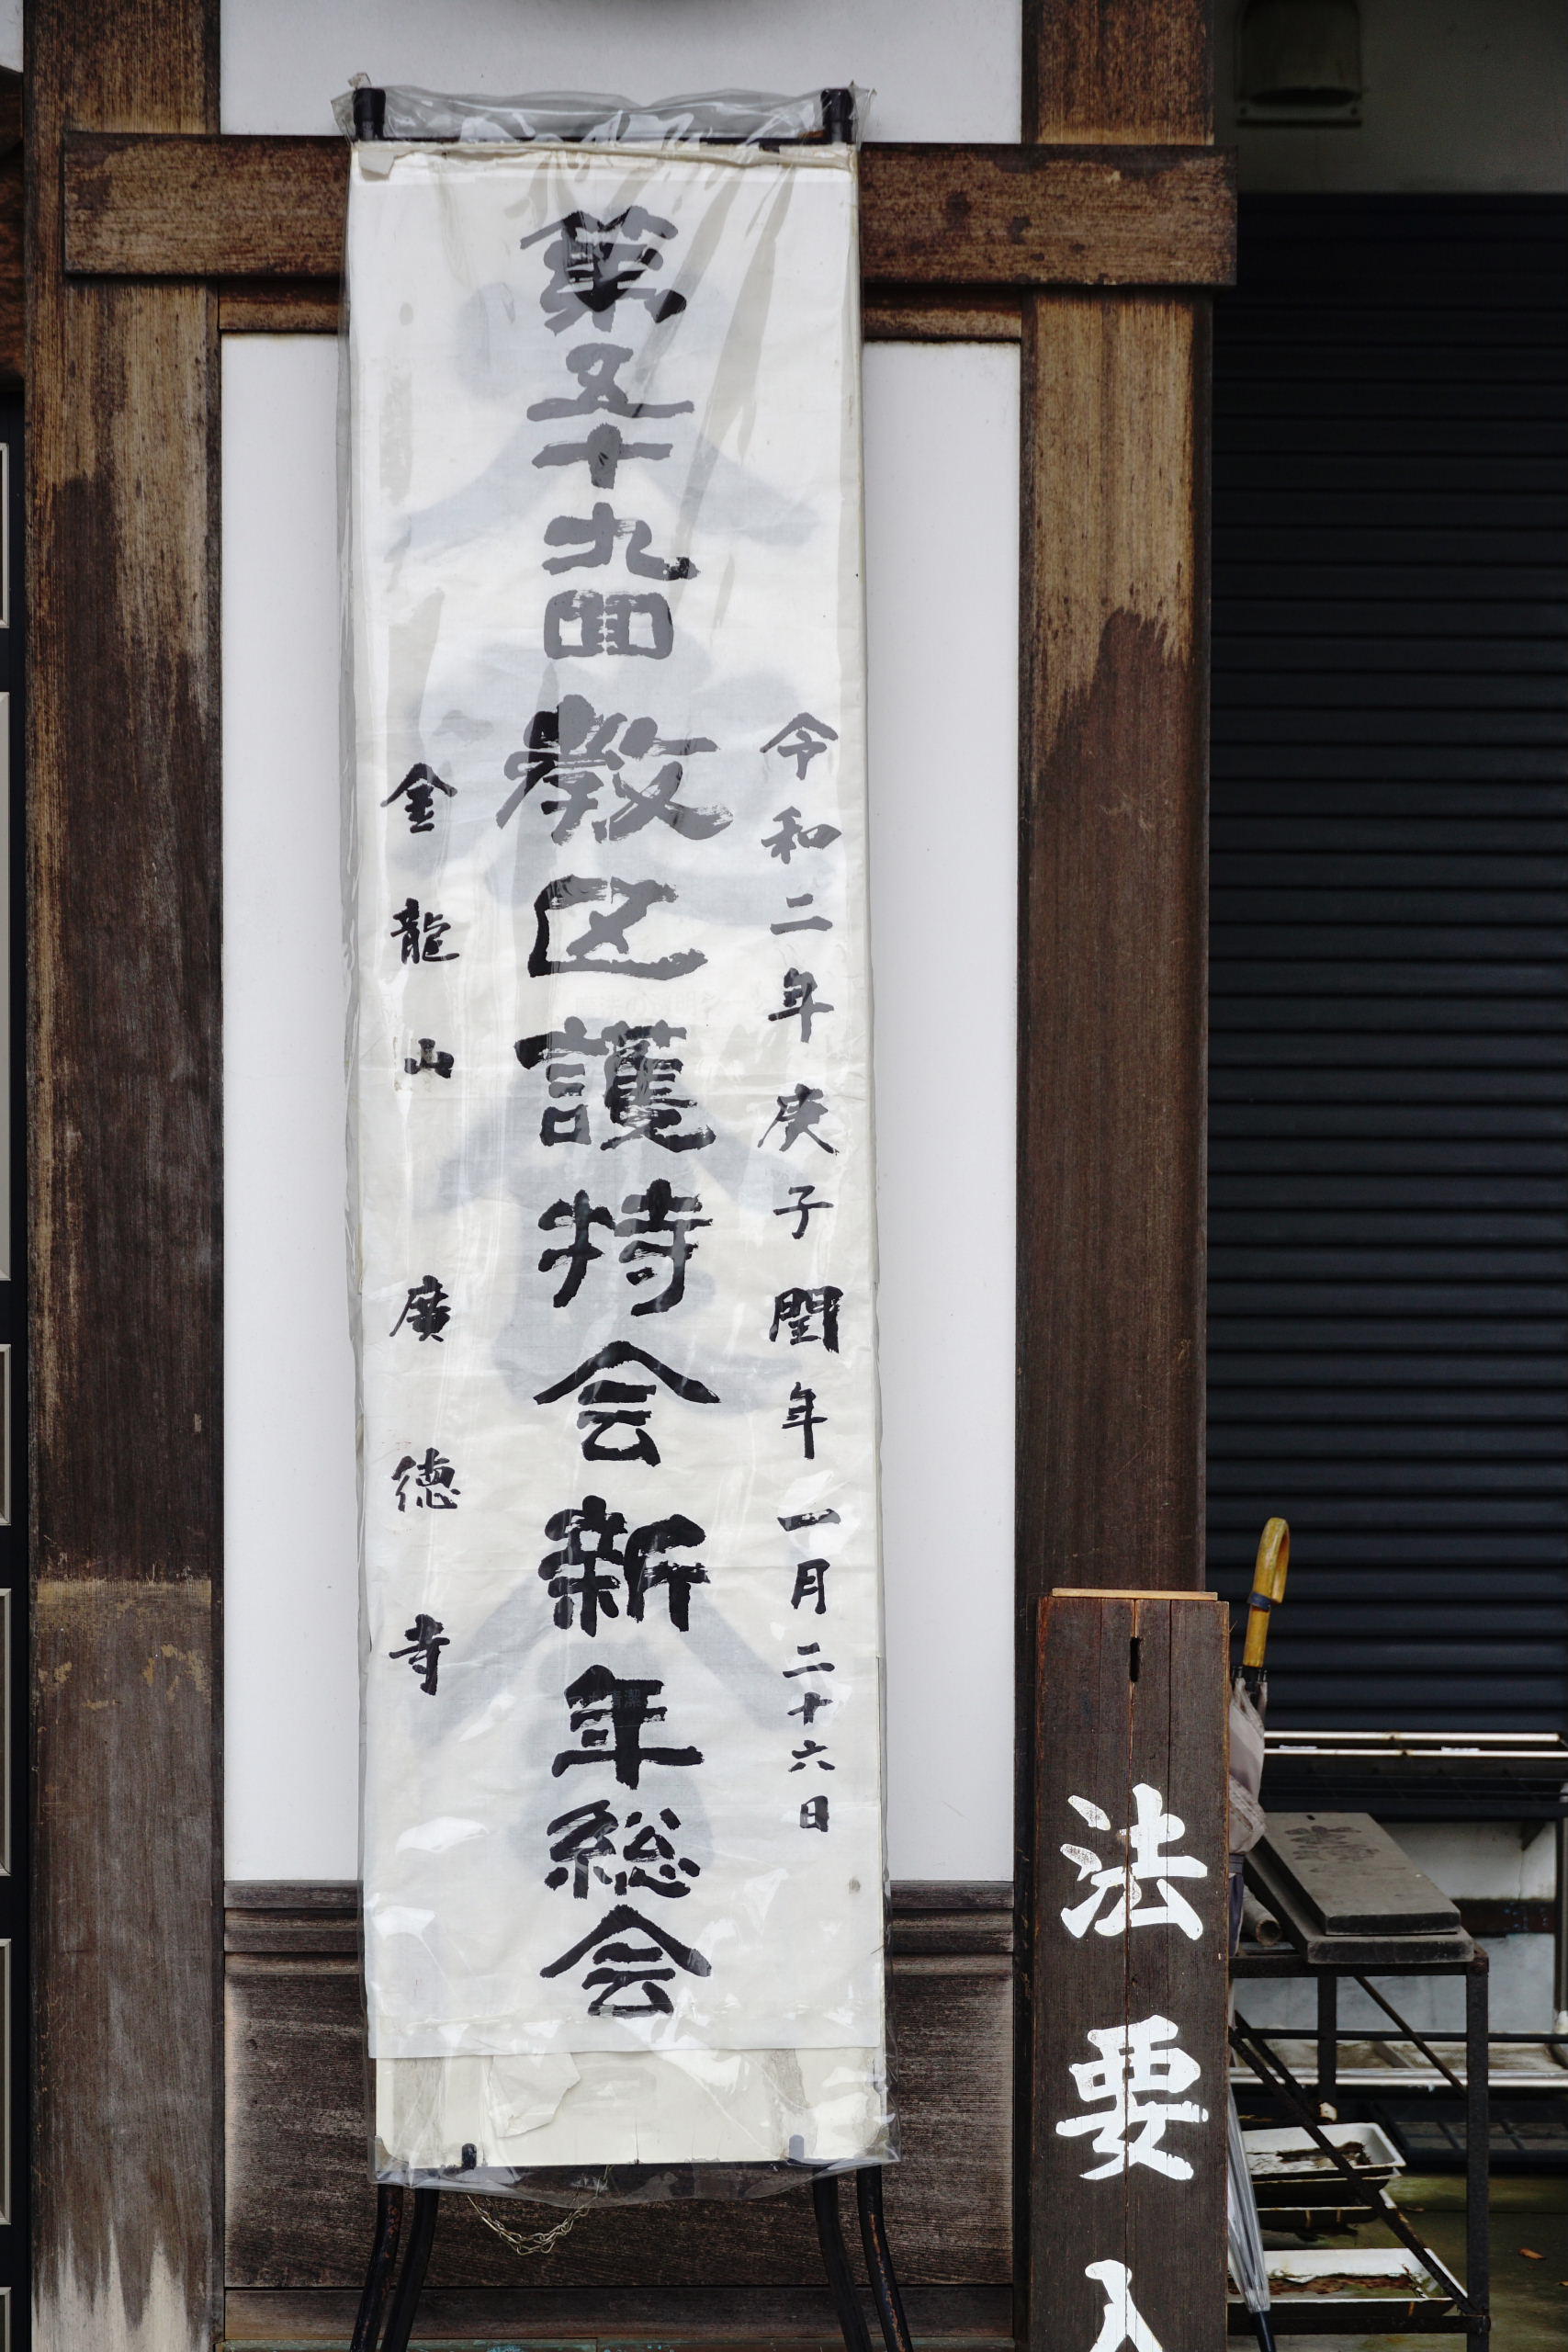 令和二年庚子閏年一月二十六日
第五十九回教区護持会新年総会
金龍山 廣徳寺
法要